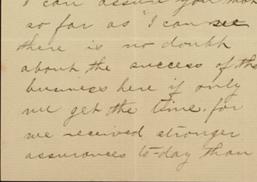 I can assure you that
so far as I can see
there is no doubt
about the success of the
business here if only
we get the time. for
we received stronger
assurances to-day than